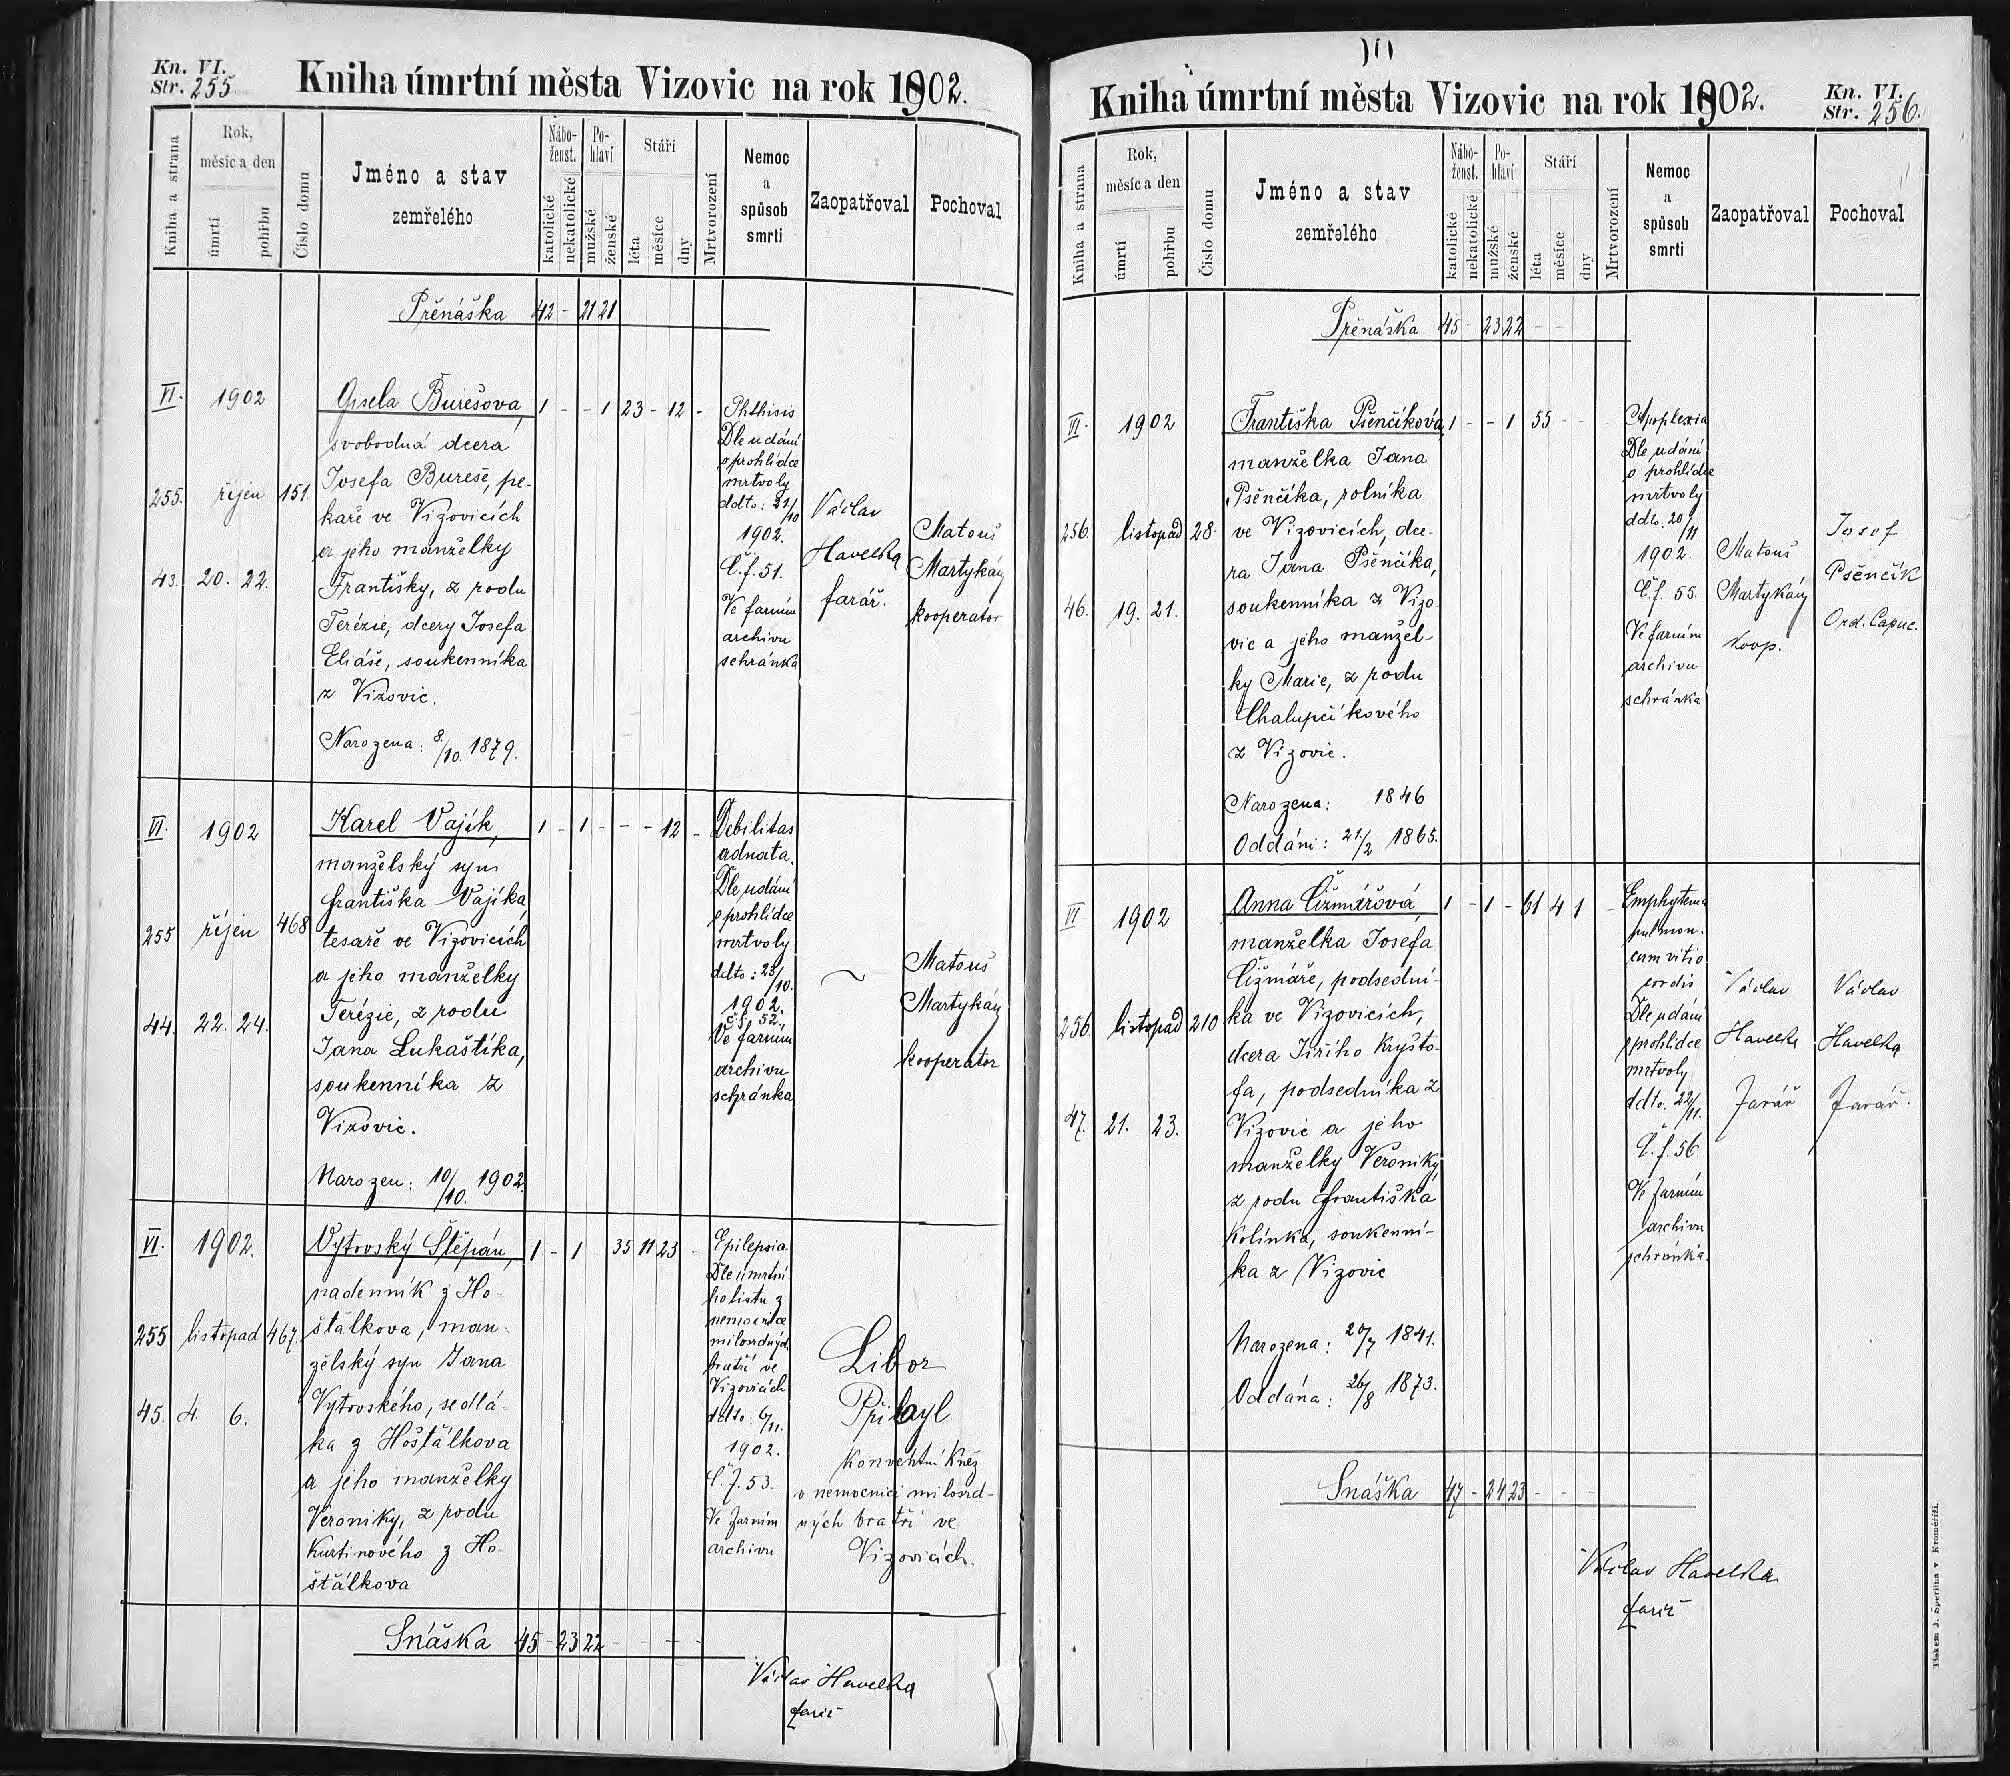 Kn. VI.
Str. 255
Kniha úmrtní města Vizovic na rok 1902.
Kniha a strana
Rok,
měsíc a den
úmrtí
pohřbu
Číslo domu
Jméno a stav
zemřelého
Nábo-
ženst.
katolické
nekatolické
Po-
hlaví
mužské
ženské
Stáří
léta
měsíce
dny
Mrtvorození
Nemoc
a
spůsob
smrti
Zaopatřoval
Pochoval
Přenáška 42 - 21 21
VI.
255.
43.
1902
říjen
20. 22.
151
Gisela Burešova,
svobodná dcera
Josefa Bureše, pe-
kaře ve Vizovicích
a jeho manželky
Františky, z rodu
Terézie, dcery Josefa
Eliáše, soukenníka
z Vizovic.
Narozena: 8./10. 1879.
1 - - 1 23 - 12 -
Phthisis
Dle udání
o prohlídce
mrtvoly
ddto: 21/10
1902.
Č.f. 51.
Ve farním
archivu
schránka
Václav
Havelka
farář.
Matouš
Martykán
kooperator
VI.
255
44.
1902
říjen
22. 24.
468
Karel Vajík,
manželský syn
Františka Vajíka,
tesaře ve Vizovicích
a jeho manželky
Terézie, z rodu
Jana Lukaštíka,
soukenníka z
Vizovic.
Narozen: 10/10. 1902.
1 - 1 - - - 12 -
Debilitas
adnata.
Dle udání
o prohlídce
mrtvoly
ddto: 23/10.
1902.
čf. 52.,
Ve farním
archivu
schránka
~
Matouš
Martykán
kooperator
VI.
255
45.
1902.
listopad
4. 6.
467.
Vytovský Štěpán,
nadenník z Ho-
šťálkova, man-
želský syn Jana
Vytovského, sedlá-
ka z Hošťálkova
a jeho manželky
Veroniky, z rodu
Kurtinového z Ho-
šťálkova
1 - 1 35 11 23 -
Epilepsia.
Dle úmrtní
ho listu z
nemocnice
milosrdných
bratří ve
Vizovicích
ddto. 6/11.
1902.
Č.f. 53.
Ve farním
archivu
Libor
Přibyl
konventní kněz
v nemocnici milosrd-
ných bratří ve
Vizovicích.
Snáška 45 - 23 22 - - - -
Václav Havelka
farář
Kniha úmrtní města Vizovic na rok 1902.
Kn. VI.
Str. 256.
Kniha a strana
Rok,
měsíc a den
úmrtí
pohřbu
Číslo domu
Jméno a stav
zemřelého
Nábo-
ženst.
katolické
nekatolické
Po-
hlaví
mužské
ženské
Stáří
léta
měsíce
dny
Mrtvorození
Nemoc
a
spůsob
smrti
Zaopatřoval
Pochoval
Přenáška 45 - 23 22 - -
VI.
256.
46.
1902
listopad
19. 21.
28.
Františka Pšenčíková,
manželka Jana
Pšenčíka, rolníka
ve Vizovicích, dce-
ra Jana Pšenčíka,
soukenníka z Vizo-
vic a jeho manžel-
ky Marie, z rodu
Chalupčíkového
z Vizovic.
Narozena: 1846
Oddáni: 21./2 1865.
1 - - 1 55 - - -
Apoplexia
Dle udání
o prohlídce
mrtvoly
ddto. 20/11
1902.
Č.f. 55.
Ve farním
archivu
schránka
Matouš
Martykán
koop.
Josef
Pšenčík
Ord. Capuc.
VI
256
47.
1902
listopad
21. 23.
210
Anna Čižmářová,
manželka Josefa
Čižmáře, podsední-
ka ve Vizovicích,
dcera Jiřího Kryšto-
fa, podsedníka z
Vizovic a jeho
manželky Veroniky,
z rodu Františka
Kolínka, soukenní-
ka z Vizovic
Narozena: 20/7 1841.
Oddána: 26/8 1873.
1 - 1 - 61 4 1 -
Emphysema
pulmon.
cum vitio
cordis
Dle udání
o prohlídce
mrtvoly
ddto. 22/11.
Č.f. 56
Ve farním
archivu
schránka.
Václav
Havelka
farář
Václav
Havelka
farář.
Snáška 47 - 24 23 - - -
Václav Havelka
farář
Tiskem J. Sperlina v Kroměříži.